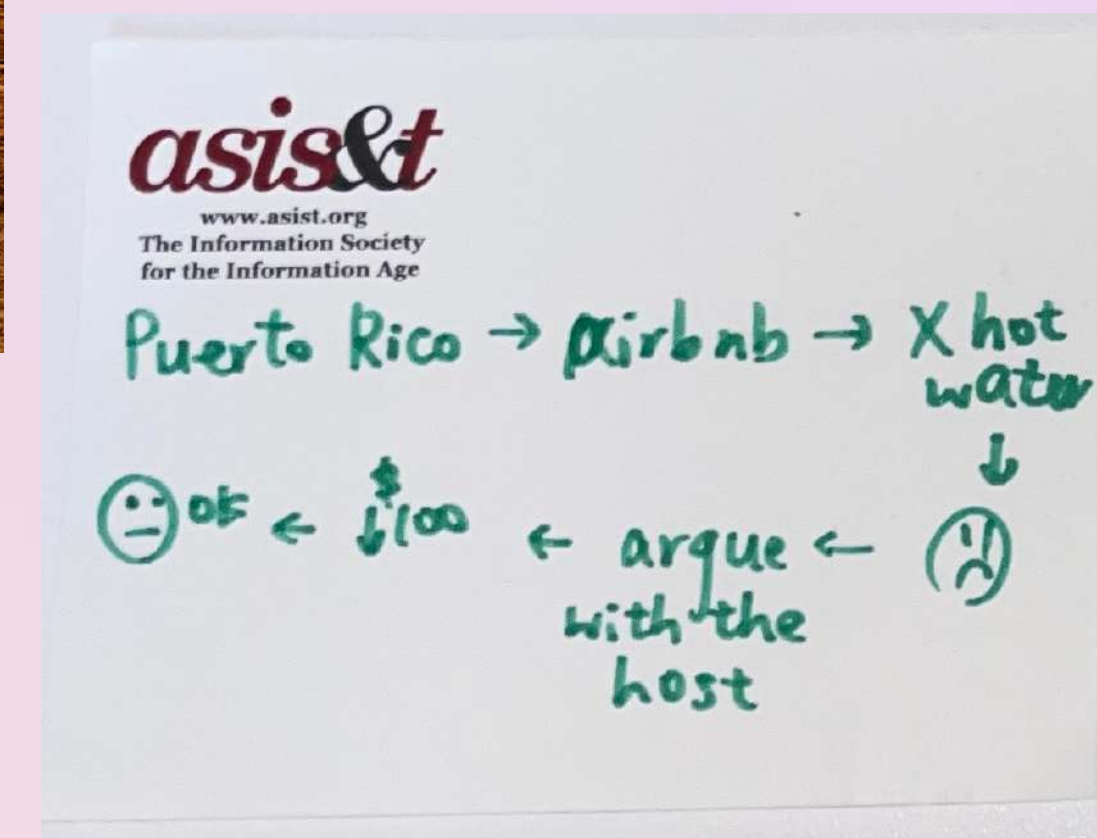 asis&t
www.asist.org
The Information Society
for the Information Age
Puerto Rico → airbnb → X hot
water
↓
☹
← argue ←
with the
host
← ↓ $100
😐 ok